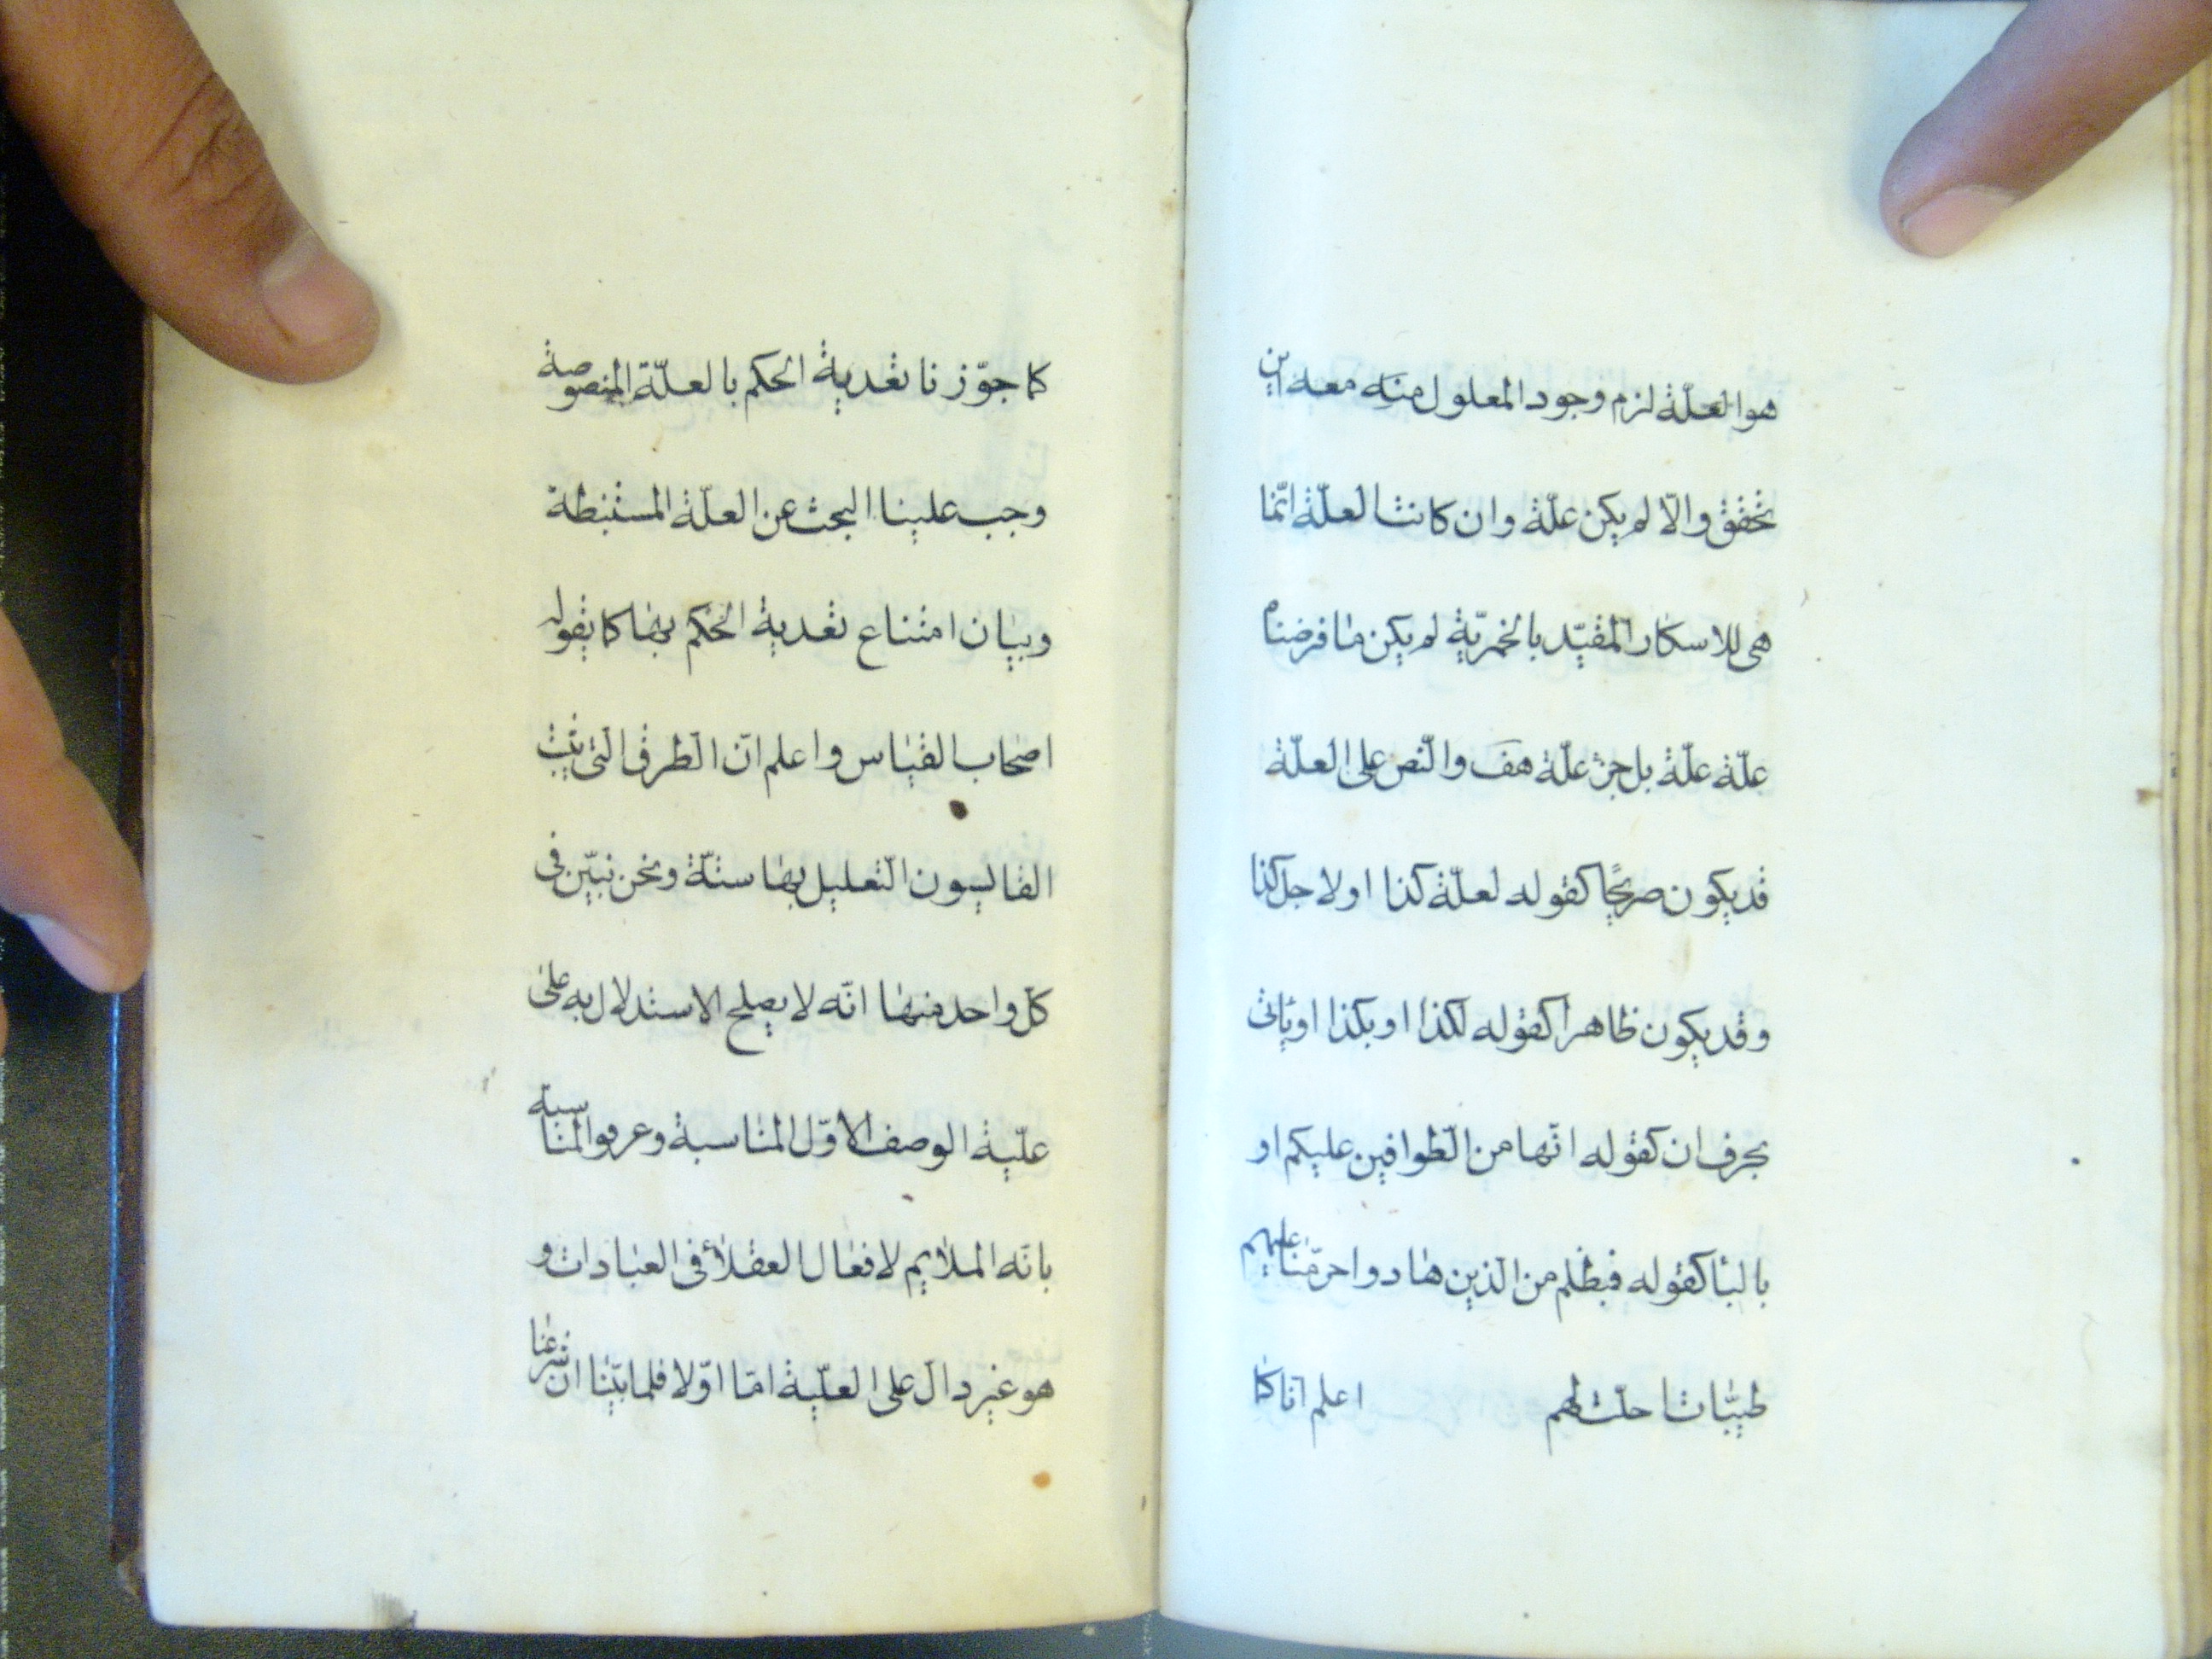 هو العلّة لزم وجود المعلول منه معه اين
تحقق والّا لم يكن علّة وان كانت العلّة انّما
هى للاسكار المقيّد بالخمريّة لم يكن ما فرضناه
علّة علّة بل جزء علّة هف والنّص على العلّة
قد يكون صريحًا كقوله لعلّة كذا او لاجل كذا
وقد يكون ظاهرا كقوله لكذا او بكذا او ياتى
بحرف ان كقوله انّها من الطّوافين عليكم او
بالبا كقوله فبظلم من الّذين هادوا حرّمنا عليهم
طيّبات احلّت لهم اعلم انّا كما
كما جوّزنا تعدية الحكم بالعلّة المنصوصة
وجب علينا البحث عن العلّة المستنبطة
وبيان امتناع تعدية الحكم بها كما يقوله
اصحاب القياس واعلم انّ الطرق الّتى يثبت
القايسون التّعليل بها ستّة ونحن نبيّن فى
كلّ واحد منها انّه لا يصلح الاستدلال به على
علّية الوصف الاوّل المناسبة وعرفوا المناسبة
بانّه الملايم لافعال العقلاء فى العبادات و
هو غير دالّ على العلّية امّا اوّلا فلما بيّنا ان شرعنا